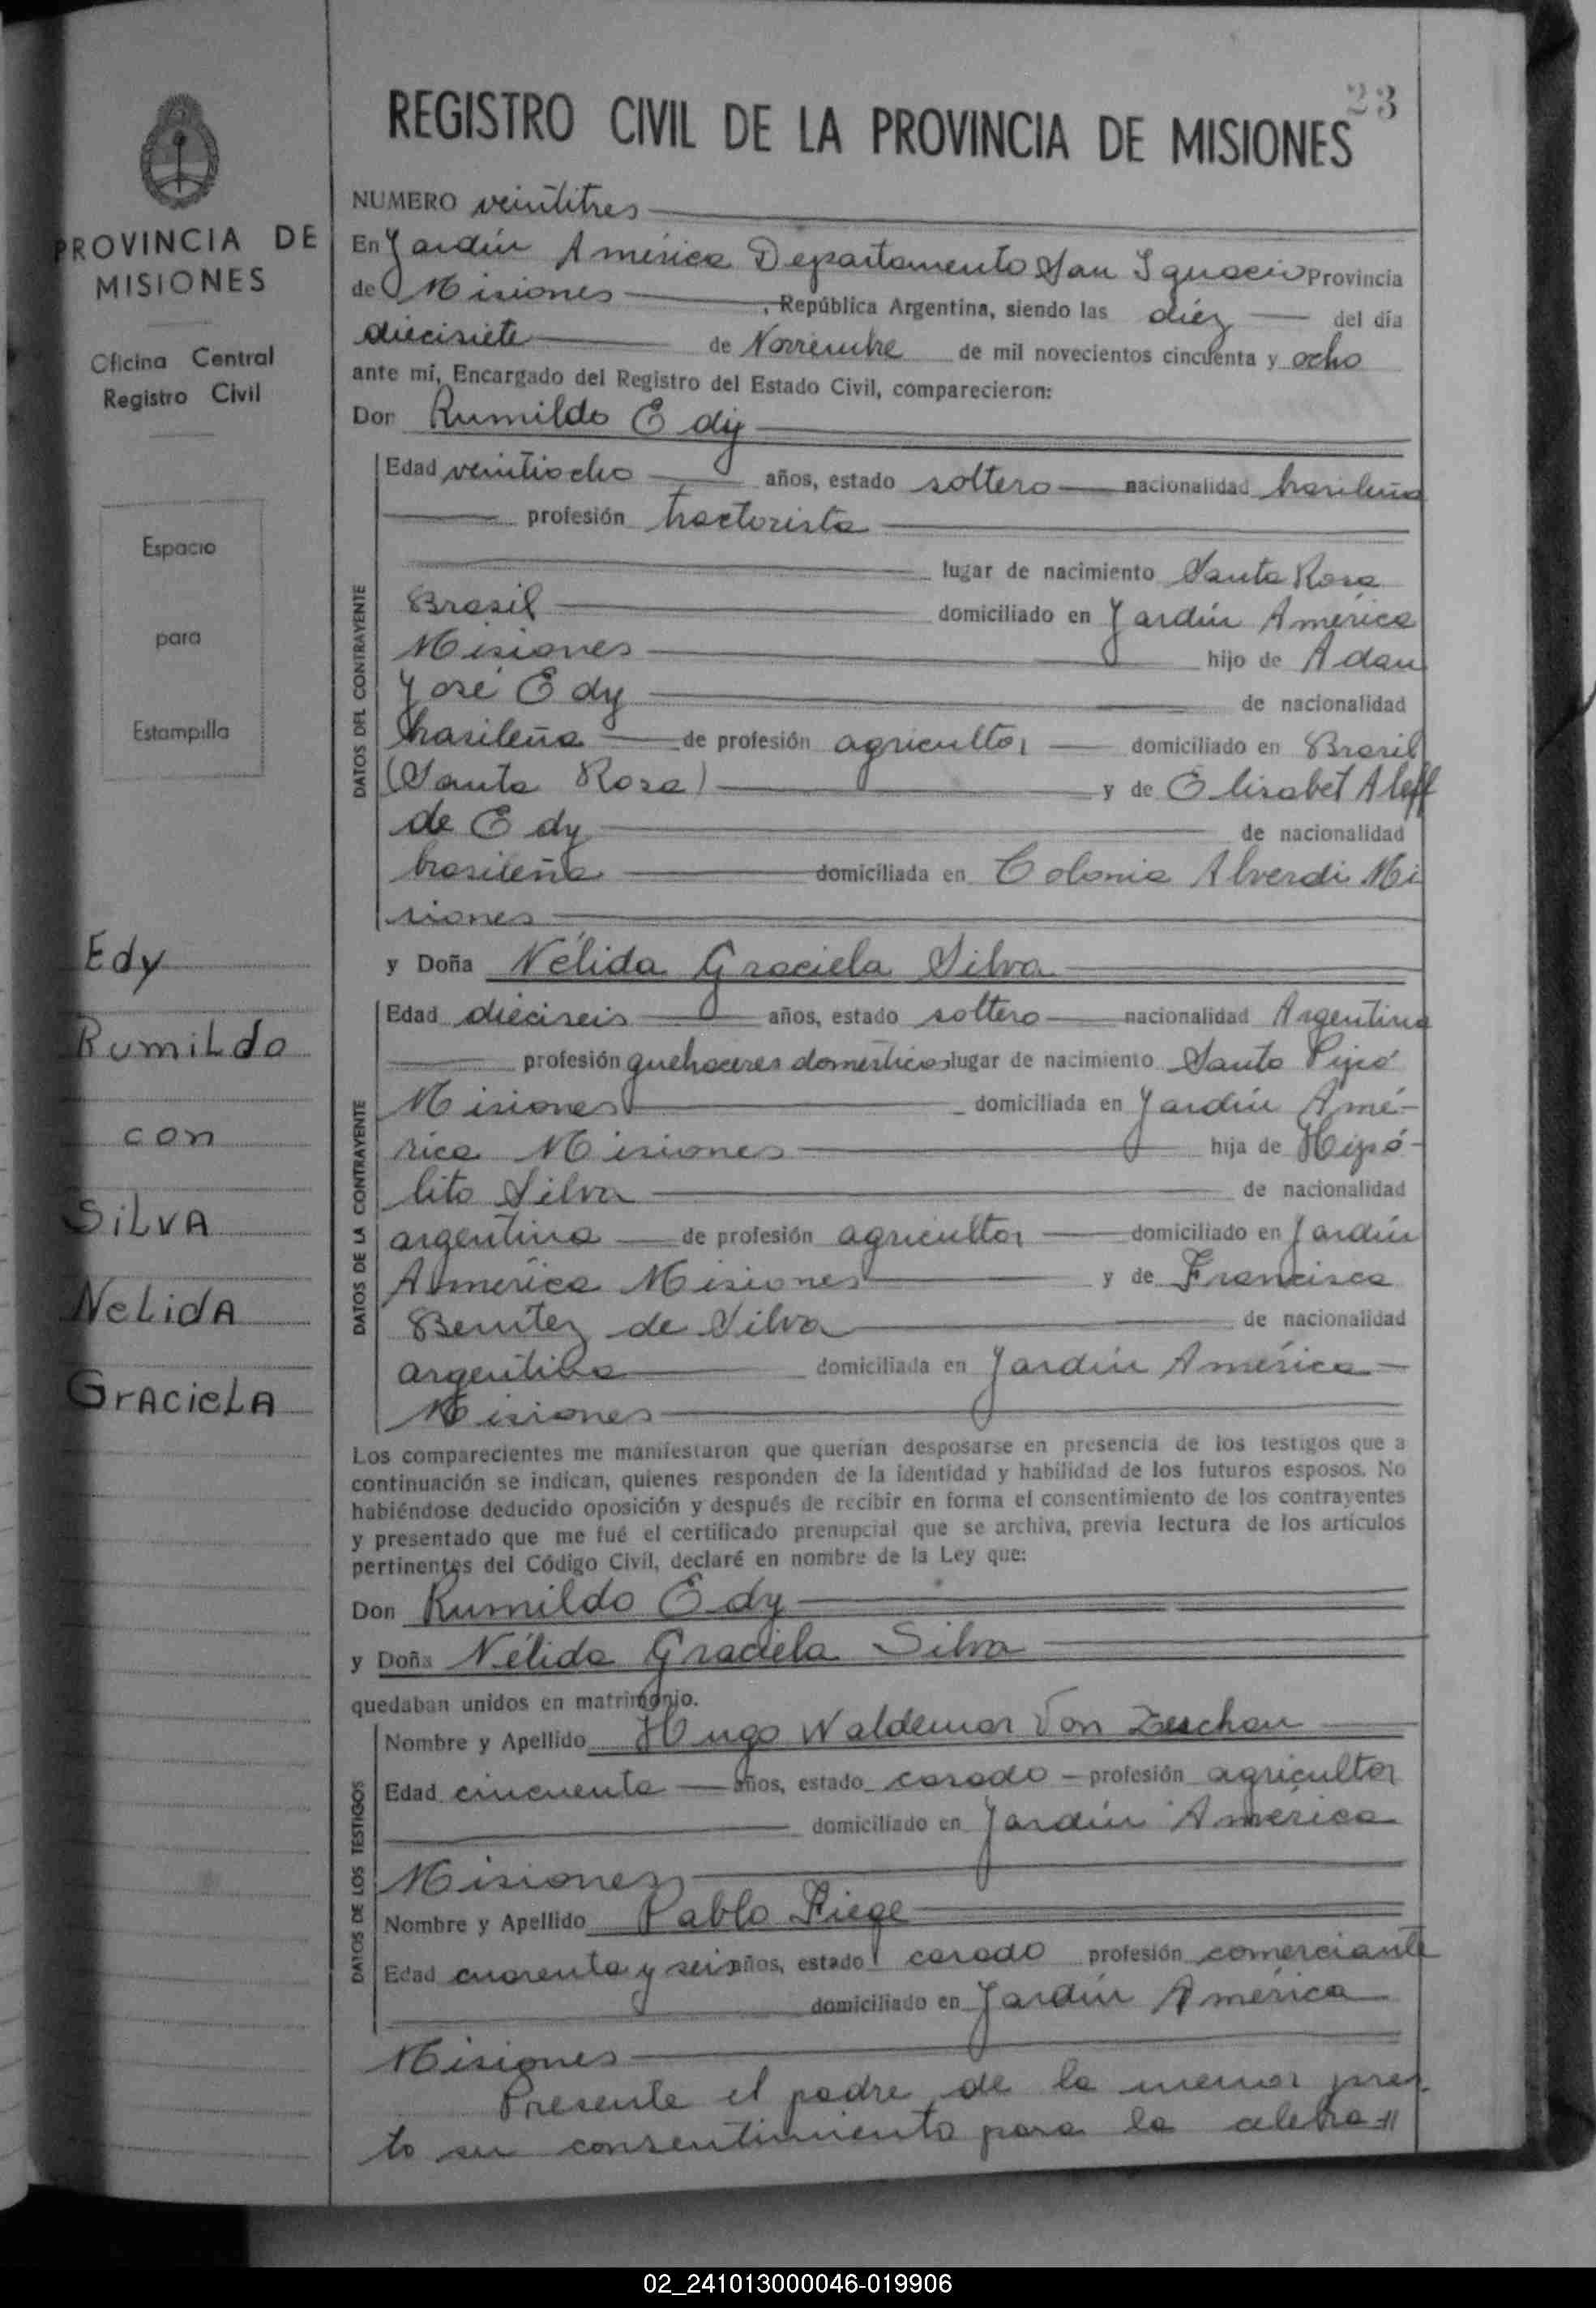 23
REGISTRO CIVIL DE LA PROVINCIA DE MISIONES
PROVINCIA DE
MISIONES
Oficina Central
Registro Civil
Espacio
para
Estampilla
Edy
Rumildo
con
Silva
Nelida
Graciela
NUMERO veintitres
En Jardín América Departamento San Ignacio Provincia
de Misiones, República Argentina, siendo las diéz del día
diecisiete de Noviembre de mil novecientos cincuenta y ocho
ante mí, Encargado del Registro del Estado Civil, comparecieron:
Don Rumildo Edy
DATOS DEL CONTRAYENTE
Edad veintiocho años, estado soltero nacionalidad brasileña
profesión tractorista
lugar de nacimiento Santa Rosa
Brasil domiciliado en Jardín América
Misiones hijo de Adan
José Edy de nacionalidad
brasileña de profesión agricultor domiciliado en Brasil
(Santa Rosa) y de Elisabet Aleff
de Edy de nacionalidad
brasileña domiciliada en Colonia Alverdi Mi
siones
y Doña Nélida Graciela Silva
DATOS DE LA CONTRAYENTE
Edad dieciseis años, estado soltero nacionalidad Argentina
profesión quehaceres domésticos lugar de nacimiento Santo Pipó
Misiones domiciliada en Jardín Amé-
rica Misiones hija de Hipó-
lito Silva de nacionalidad
argentina de profesión agricultor domiciliado en Jardín
América Misiones y de Francisca
Benitez de Silva de nacionalidad
argentina domiciliada en Jardín América
Misiones
Los comparecientes me manifestaron que querían desposarse en presencia de los testigos que a
continuación se indican, quienes responden de la identidad y habilidad de los futuros esposos. No
habiéndose deducido oposición y después de recibir en forma el consentimiento de los contrayentes
y presentado que me fué el certificado prenupcial que se archiva, previa lectura de los artículos
pertinentes del Código Civil, declaré en nombre de la Ley que:
Don Rumildo Edy
y Doña Nélida Graciela Silva
quedaban unidos en matrimonio.
DATOS DE LOS TESTIGOS
Nombre y Apellido Hugo Waldemar Von Zeschau
Edad cincuenta años, estado casado profesión agricultor
domiciliado en Jardín América
Misiones
Nombre y Apellido Pablo Fiege
Edad cuarenta y seis años, estado casado profesión comerciante
domiciliado en Jardín América
Misiones
Presente el padre de la menor pres
to su consentimiento para la celebra=//
02_241013000046-019906